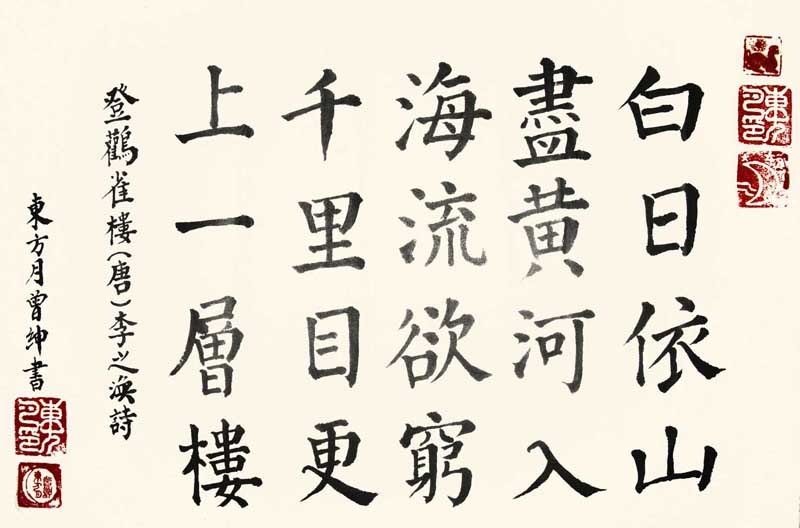 白日依山
盡黄河入
海流欲窮
千里目更
上一層樓
登鸛雀樓(唐)李之渙詩
東方月曾紳書